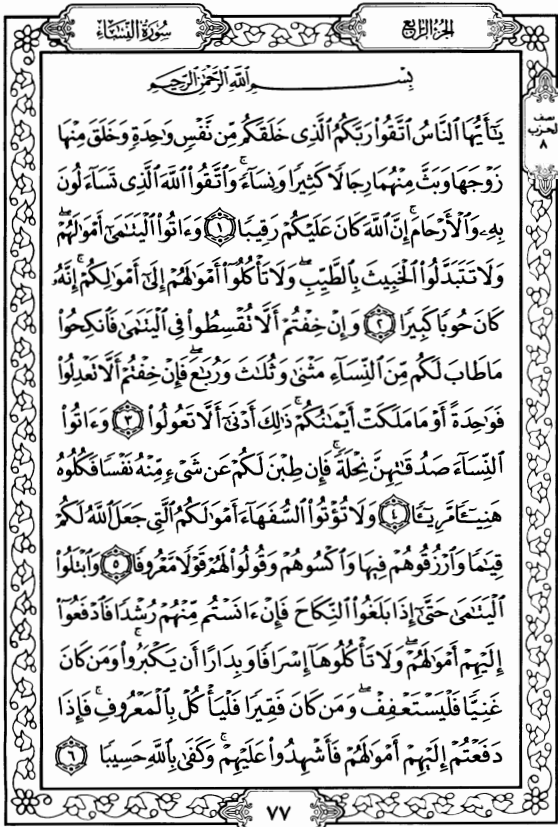 سُورَةُ النِّسَاءِ
الجُزْءُ الرَّابِعُ
نصف
الحزب
٨
بِسْمِ ٱللَّهِ ٱلرَّحْمَٰنِ ٱلرَّحِيمِ
يَٰٓأَيُّهَا ٱلنَّاسُ ٱتَّقُوا۟ رَبَّكُمُ ٱلَّذِى خَلَقَكُم مِّن نَّفْسٍ وَٰحِدَةٍ وَخَلَقَ مِنْهَا
زَوْجَهَا وَبَثَّ مِنْهُمَا رِجَالًا كَثِيرًا وَنِسَآءً ۚ وَٱتَّقُوا۟ ٱللَّهَ ٱلَّذِى تَسَآءَلُونَ
بِهِۦ وَٱلْأَرْحَامَ ۚ إِنَّ ٱللَّهَ كَانَ عَلَيْكُمْ رَقِيبًا ١ وَءَاتُوا۟ ٱلْيَتَٰمَىٰٓ أَمْوَٰلَهُمْ ۖ
وَلَا تَتَبَدَّلُوا۟ ٱلْخَبِيثَ بِٱلطَّيِّبِ ۖ وَلَا تَأْكُلُوٓا۟ أَمْوَٰلَهُمْ إِلَىٰٓ أَمْوَٰلِكُمْ ۚ إِنَّهُۥ
كَانَ حُوبًا كَبِيرًا ٢ وَإِنْ خِفْتُمْ أَلَّا تُقْسِطُوا۟ فِى ٱلْيَتَٰمَىٰ فَٱنكِحُوا۟
مَا طَابَ لَكُم مِّنَ ٱلنِّسَآءِ مَثْنَىٰ وَثُلَٰثَ وَرُبَٰعَ ۖ فَإِنْ خِفْتُمْ أَلَّا تَعْدِلُوا۟
فَوَٰحِدَةً أَوْ مَا مَلَكَتْ أَيْمَٰنُكُمْ ۚ ذَٰلِكَ أَدْنَىٰٓ أَلَّا تَعُولُوا۟ ٣ وَءَاتُوا۟
ٱلنِّسَآءَ صَدُقَٰتِهِنَّ نِحْلَةً ۚ فَإِن طِبْنَ لَكُمْ عَن شَىْءٍ مِّنْهُ نَفْسًا فَكُلُوهُ
هَنِيٓـًٔا مَّرِيٓـًٔا ٤ وَلَا تُؤْتُوا۟ ٱلسُّفَهَآءَ أَمْوَٰلَكُمُ ٱلَّتِى جَعَلَ ٱللَّهُ لَكُمْ
قِيَٰمًا وَٱرْزُقُوهُمْ فِيهَا وَٱكْسُوهُمْ وَقُولُوا۟ لَهُمْ قَوْلًا مَّعْرُوفًا ٥ وَٱبْتَلُوا۟
ٱلْيَتَٰمَىٰ حَتَّىٰٓ إِذَا بَلَغُوا۟ ٱلنِّكَاحَ فَإِنْ ءَانَسْتُم مِّنْهُمْ رُشْدًا فَٱدْفَعُوٓا۟
إِلَيْهِمْ أَمْوَٰلَهُمْ ۖ وَلَا تَأْكُلُوهَآ إِسْرَافًا وَبِدَارًا أَن يَكْبَرُوا۟ ۚ وَمَن كَانَ
غَنِيًّا فَلْيَسْتَعْفِفْ ۖ وَمَن كَانَ فَقِيرًا فَلْيَأْكُلْ بِٱلْمَعْرُوفِ ۚ فَإِذَا
دَفَعْتُمْ إِلَيْهِمْ أَمْوَٰلَهُمْ فَأَشْهِدُوا۟ عَلَيْهِمْ ۚ وَكَفَىٰ بِٱللَّهِ حَسِيبًا ٦
٧٧